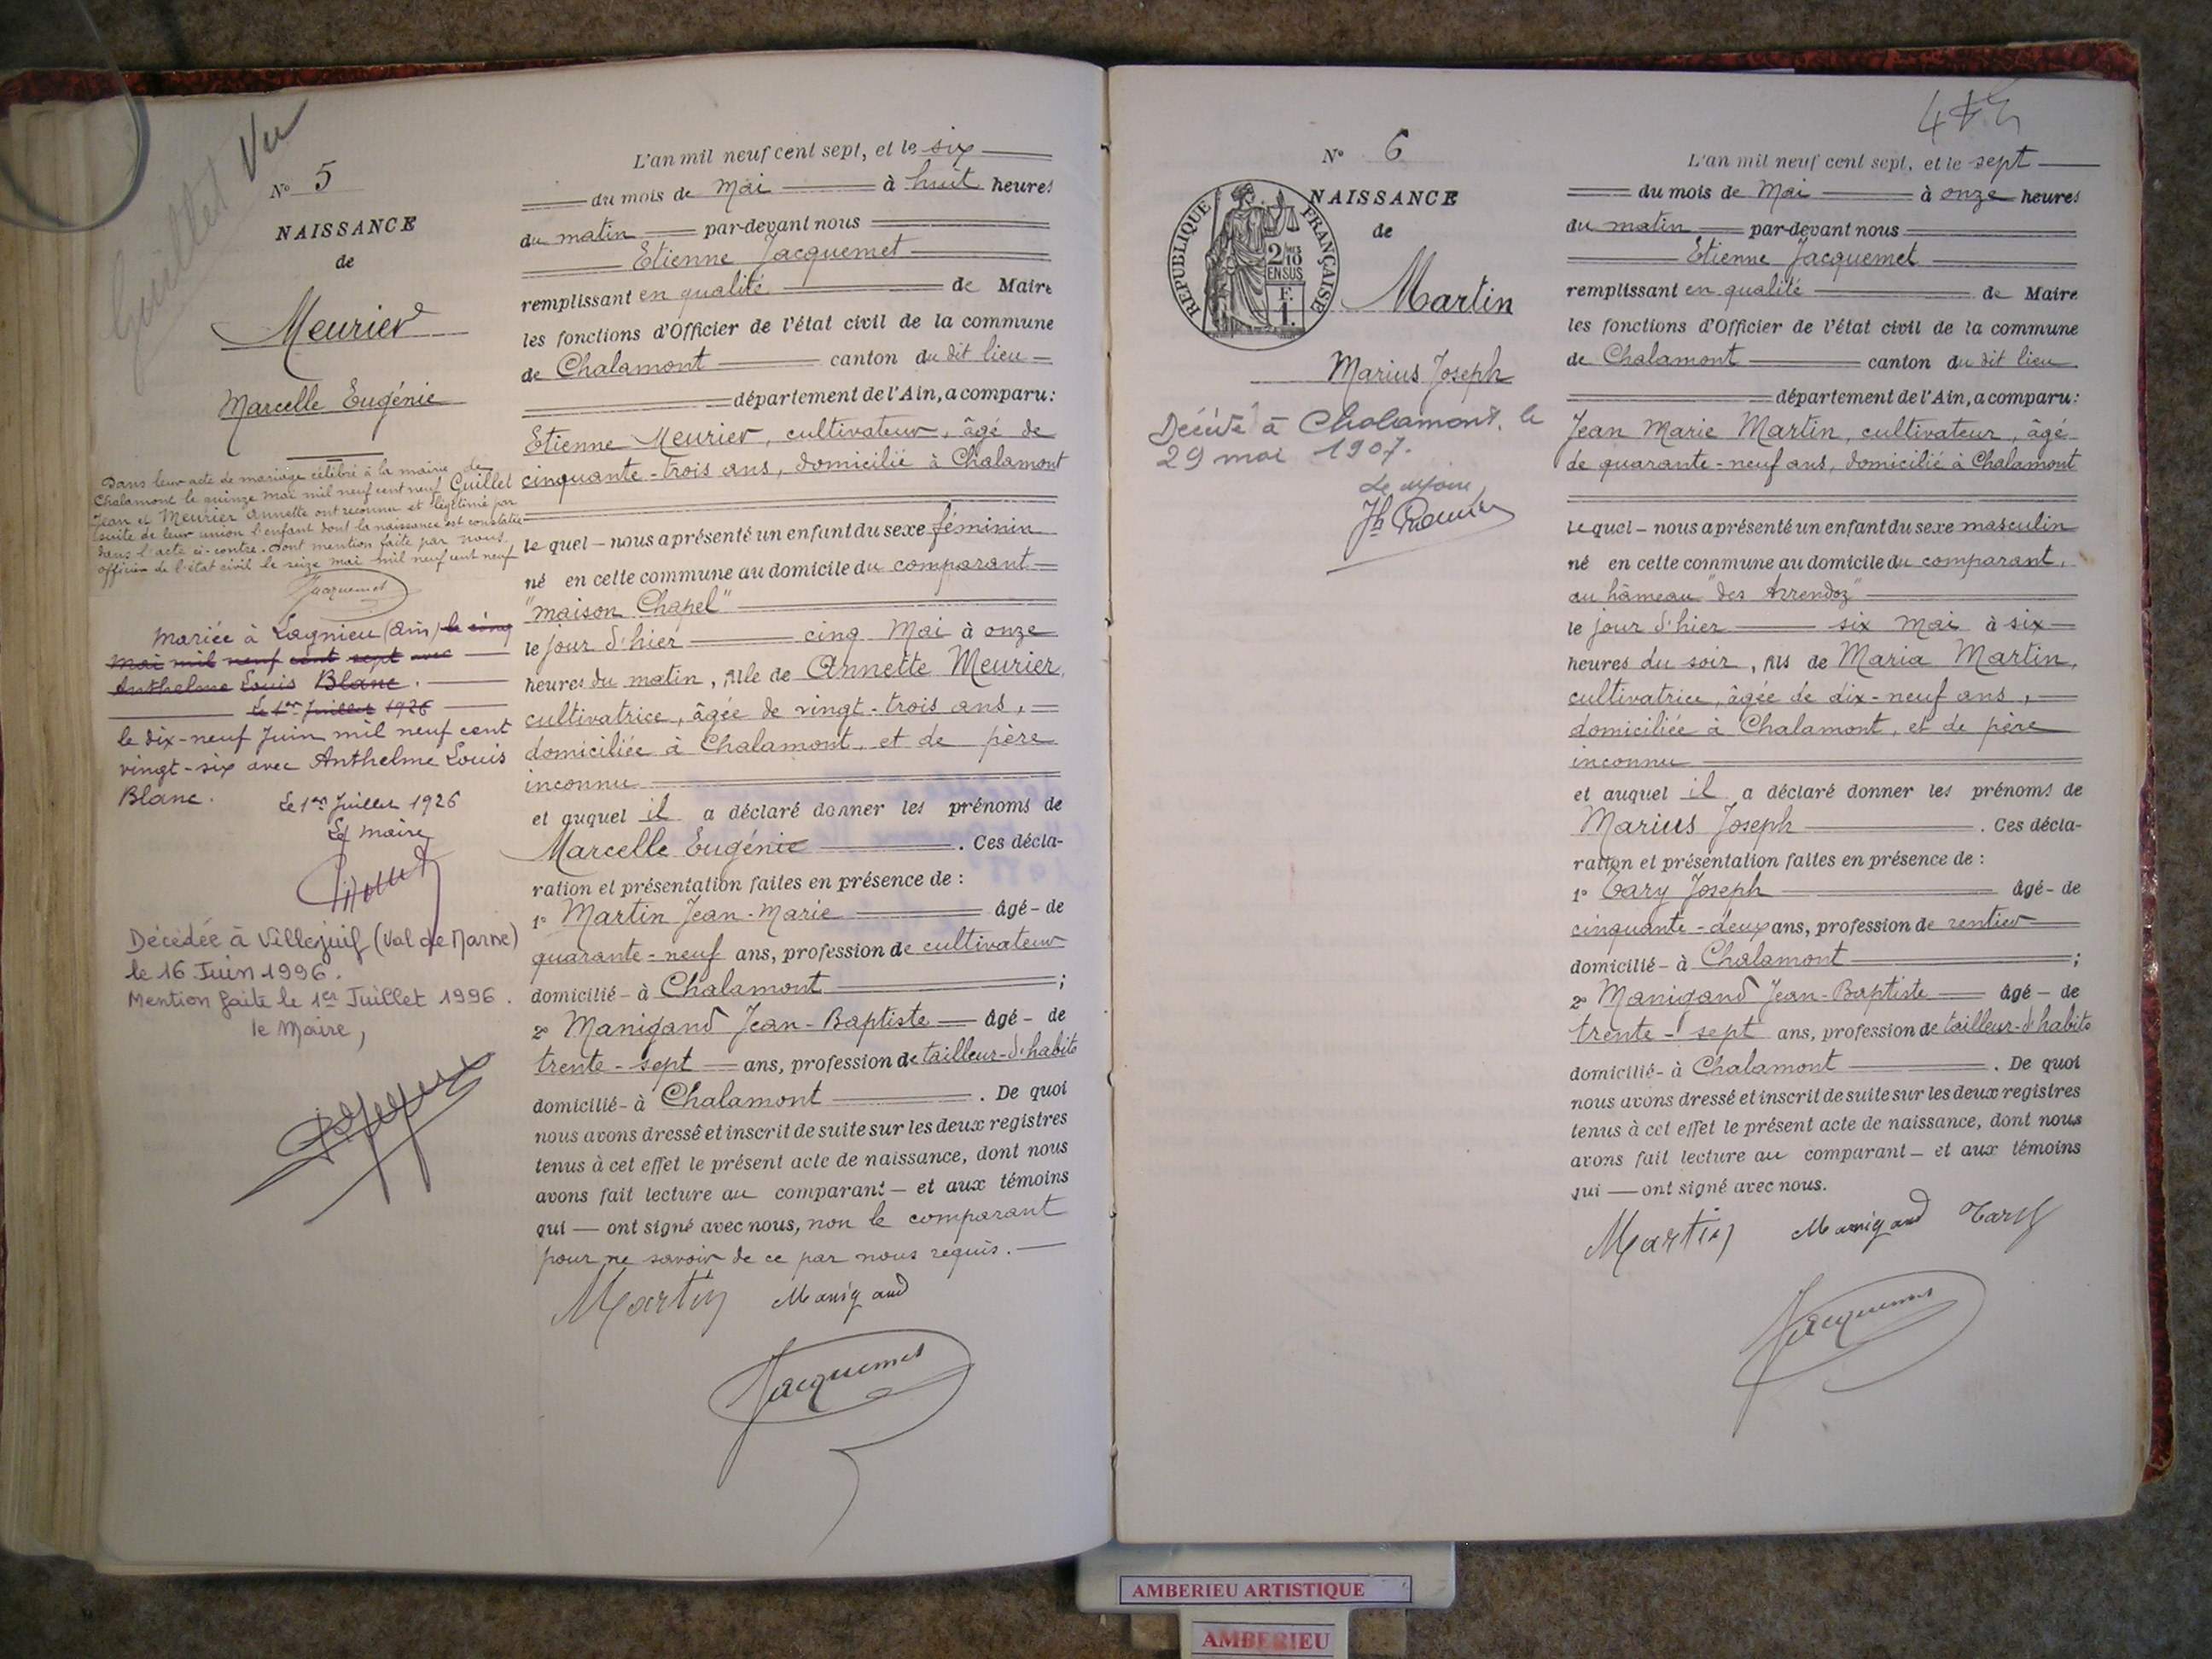 Guillet Vu
N° 5
NAISSANCE
de
Meurier
Marcelle Eugénie
Dans leur acte de mariage célébré à la mairie de
Chalamont le quinze mai mil neuf cent neuf Guillet
Jean et Meurier Annette ont reconnu et légitimé par
suite de leur union l'enfant dont la naissance est constatée
dans l'acte ci-contre. Dont mention faite par nous
officier de l'état civil le seize mai mil neuf cent neuf
Jacquemet
Mariée à Lagnieu (Ain) le cinq
mai mil neuf cent sept avec
Anthelme Louis Blanc.
Le 1er Juillet 1926
le dix-neuf Juin mil neuf cent
vingt-six avec Anthelme Louis
Blanc.
Le 1er Juillet 1926
Le maire
Décédée à Villejuif (Val de Marne)
le 16 Juin 1996.
Mention faite le 1er Juillet 1996.
le Maire,
L'an mil neuf cent sept, et le six
du mois de Mai à huit heures
du matin par-devant nous
Etienne Jacquemet
remplissant en qualité de Maire
les fonctions d'Officier de l'état civil de la commune
de Chalamont canton du dit lieu
département de l'Ain, a comparu:
Etienne Meurier, cultivateur, âgé de
cinquante-trois ans, domicilié à Chalamont
le quel - nous a présenté un enfant du sexe féminin
né en cette commune au domicile du comparant
"maison Chapel"
le jour d'hier cinq Mai à onze
heures du matin, fille de Annette Meurier,
cultivatrice, âgée de vingt-trois ans,
domiciliée à Chalamont, et de père
inconnu
et auquel il a déclaré donner les prénoms de
Marcelle Eugénie . Ces décla-
ration et présentation faites en présence de :
1° Martin Jean-Marie âgé - de
quarante-neuf ans, profession de cultivateur
domicilié - à Chalamont ;
2° Manigand Jean-Baptiste âgé - de
trente-sept ans, profession de tailleur-d'habits
domicilié - à Chalamont . De quoi
nous avons dressé et inscrit de suite sur les deux registres
tenus à cet effet le présent acte de naissance, dont nous
avons fait lecture au comparant - et aux témoins
qui - ont signé avec nous, non le comparant
pour ne savoir de ce par nous requis.
Martin Manigand
Jacquemet
N° 6
NAISSANCE
de
REPUBLIQUE FRANÇAISE
2/10
EN SUS
F.
1.
Martin
Marius Joseph
Décédé à Chalamont, le
29 mai 1907.
Le Maire,
L'an mil neuf cent sept, et le sept
du mois de Mai à onze heures
du matin par-devant nous
Etienne Jacquemet
remplissant en qualité de Maire
les fonctions d'Officier de l'état civil de la commune
de Chalamont canton du dit lieu
département de l'Ain, a comparu:
Jean Marie Martin, cultivateur, âgé
de quarante-neuf ans, domicilié à Chalamont
le quel - nous a présenté un enfant du sexe masculin
né en cette commune au domicile du comparant,
au hâmeau "des Arrendoz"
le jour d'hier six Mai à six
heures du soir, fils de Maria Martin,
cultivatrice, âgée de dix-neuf ans,
domiciliée à Chalamont, et de père
inconnu
et auquel il a déclaré donner les prénoms de
Marius Joseph . Ces décla-
ration et présentation faites en présence de :
1° Cary Joseph âgé - de
cinquante-deux ans, profession de rentier
domicilié - à Chalamont ;
2° Manigand Jean-Baptiste âgé - de
trente-sept ans, profession de tailleur-d'habits
domicilié - à Chalamont . De quoi
nous avons dressé et inscrit de suite sur les deux registres
tenus à cet effet le présent acte de naissance, dont nous
avons fait lecture au comparant - et aux témoins
qui - ont signé avec nous.
Martin Manigand Cary
Jacquemet
AMBERIEU ARTISTIQUE
AMBERIEU